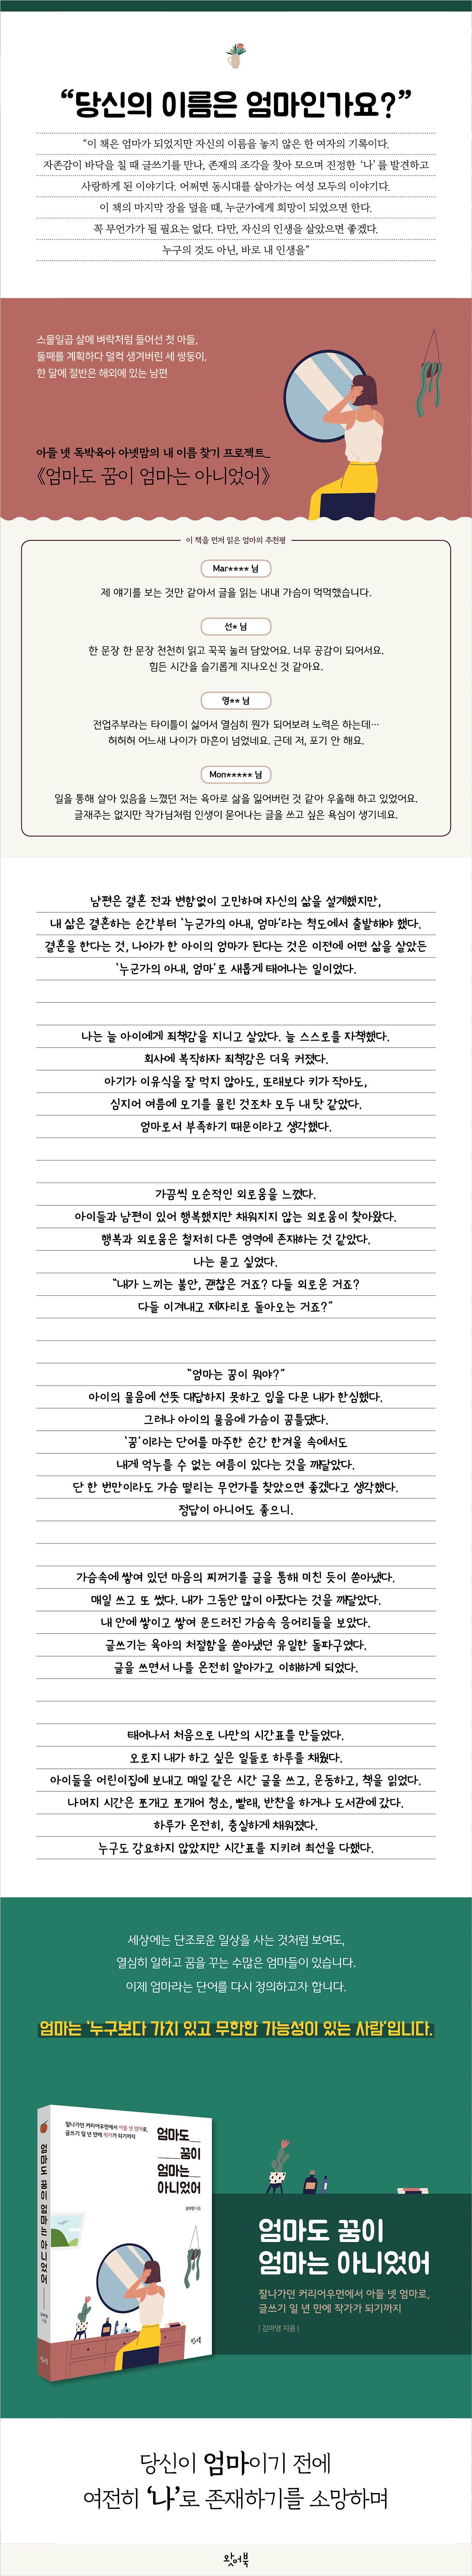 “당신의 이름은 엄마인가요?”
“이 책은 엄마가 되었지만 자신의 이름을 놓지 않은 한 여자의 기록이다.
자존감이 바닥을 칠 때 글쓰기를 만나, 존재의 조각을 찾아 모으며 진정한 ‘나’를 발견하고
사랑하게 된 이야기다. 어쩌면 동시대를 살아가는 여성 모두의 이야기다.
이 책의 마지막 장을 덮을 때, 누군가에게 희망이 되었으면 한다.
꼭 무언가가 될 필요는 없다. 다만, 자신의 인생을 살았으면 좋겠다.
누구의 것도 아닌, 바로 내 인생을”
스물일곱 살에 벼락처럼 들어선 첫 아들,
둘째를 계획하다 덜컥 생겨버린 세 쌍둥이,
한 달에 절반은 해외에 있는 남편
아들 넷 독박육아 아넷맘의 내 이름 찾기 프로젝트_
《엄마도 꿈이 엄마는 아니었어》
이 책을 먼저 읽은 엄마의 추천평
Mar**** 님
제 얘기를 보는 것만 같아서 글을 읽는 내내 가슴이 먹먹했습니다.
선* 님
한 문장 한 문장 천천히 읽고 꾹꾹 눌러 담았어요. 너무 공감이 되어서요.
힘든 시간을 슬기롭게 지나오신 것 같아요.
영** 님
전업주부라는 타이틀이 싫어서 열심히 뭔가 되어보려 노력은 하는데…
허허허 어느새 나이가 마흔이 넘었네요. 근데 저, 포기 안 해요.
Mon***** 님
일을 통해 살아 있음을 느꼈던 저는 육아로 삶을 잃어버린 것 같아 우울해 하고 있었어요.
글재주는 없지만 작가님처럼 인생이 묻어나는 글을 쓰고 싶은 욕심이 생기네요.
남편은 결혼 전과 변함없이 고민하며 자신의 삶을 설계했지만,
내 삶은 결혼하는 순간부터 ‘누군가의 아내, 엄마’라는 척도에서 출발해야 했다.
결혼을 한다는 것, 나아가 한 아이의 엄마가 된다는 것은 이전에 어떤 삶을 살았든
‘누군가의 아내, 엄마’로 새롭게 태어나는 일이었다.
나는 늘 아이에게 죄책감을 지니고 살았다. 늘 스스로를 자책했다.
회사에 복직하자 죄책감은 더욱 커졌다.
아기가 이유식을 잘 먹지 않아도, 또래보다 키가 작아도,
심지어 여름에 모기를 물린 것조차 모두 내 탓 같았다.
엄마로서 부족하기 때문이라고 생각했다.
가끔씩 모순적인 외로움을 느꼈다.
아이들과 남편이 있어 행복했지만 채워지지 않는 외로움이 찾아왔다.
행복과 외로움은 철저히 다른 영역에 존재하는 것 같았다.
나는 묻고 싶었다.
“내가 느끼는 불안, 괜찮은 거죠? 다들 외로운 거죠?
다들 이겨내고 제자리로 돌아오는 거죠?”
“엄마는 꿈이 뭐야?”
아이의 물음에 선뜻 대답하지 못하고 입을 다문 내가 한심했다.
그러나 아이의 물음에 가슴이 꿈틀댔다.
‘꿈’이라는 단어를 마주한 순간 한겨울 속에서도
내게 억누를 수 없는 여름이 있다는 것을 깨달았다.
단 한 번만이라도 가슴 떨리는 무언가를 찾았으면 좋겠다고 생각했다.
정답이 아니어도 좋으니.
가슴속에 쌓여 있던 마음의 찌꺼기를 글을 통해 미친 듯이 쏟아냈다.
매일 쓰고 또 썼다. 내가 그동안 많이 아팠다는 것을 깨달았다.
내 안에 쌓이고 쌓여 문드러진 가슴속 응어리들을 보았다.
글쓰기는 육아의 처절함을 쏟아냈던 유일한 돌파구였다.
글을 쓰면서 나를 온전히 알아가고 이해하게 되었다.
태어나서 처음으로 나만의 시간표를 만들었다.
오로지 내가 하고 싶은 일들로 하루를 채웠다.
아이들을 어린이집에 보내고 매일 같은 시간 글을 쓰고, 운동하고, 책을 읽었다.
나머지 시간은 쪼개고 쪼개어 청소, 빨래, 반찬을 하거나 도서관에 갔다.
하루가 온전히, 충실하게 채워졌다.
누구도 강요하지 않았지만 시간표를 지키려 최선을 다했다.
세상에는 단조로운 일상을 사는 것처럼 보여도,
열심히 일하고 꿈을 꾸는 수많은 엄마들이 있습니다.
이제 엄마라는 단어를 다시 정의하고자 합니다.
엄마는 ‘누구보다 가치 있고 무한한 가능성이 있는 사람’입니다.
잘나가던 커리어우먼에서 아들 넷 엄마로,
글쓰기 일 년 만에 작가가 되기까지
엄마도__
__꿈이
엄마는__
아니었어
김아영 지음
엄마도 꿈이 엄마는 아니었어
김아영 지음
엄마도 꿈이
엄마는 아니었어
잘나가던 커리어우먼에서 아들 넷 엄마로,
글쓰기 일 년 만에 작가가 되기까지
| 김아영 지음 |
당신이 엄마이기 전에
여전히 ‘나’로 존재하기를 소망하며
왓어북